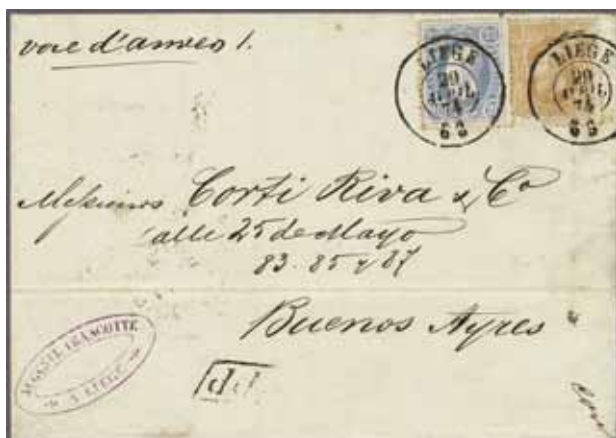 voie d'anvers /.
LIEGE
20
AVRIL
74
6 S
LIEGE
20
AVRIL
74
6 S
Messieurs Corti Riva & Co
Calle 25 de Mayo
83. 85 y 87
Buenos Ayres
FRANCOTTE
A LIEGE